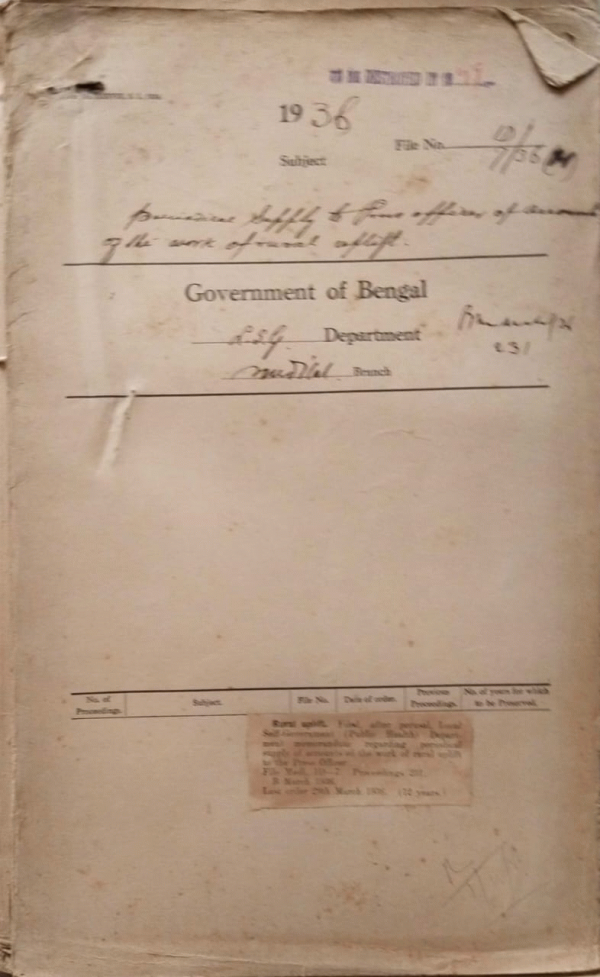 TO BE DESTROYED IN
1936
File No.
Subject
Periodical supply to Press officer of account
of the work of rural uplift.
Government of Bengal
L.S.G. Department
231
Medical Branch
No. of Proceedings. Subject. File No. Date of order. Previous Proceedings. No. of years for which to be Preserved.
Rural uplift. Filed, after perusal, Local
Self-Government (Public Health) Depart-
ment memorandum regarding periodical
supply of accounts of the work of rural uplift
to the Press Officer.
File Medl. Proceedings 231
B March 1936.
Last order 29th March 1936. (12 years.)